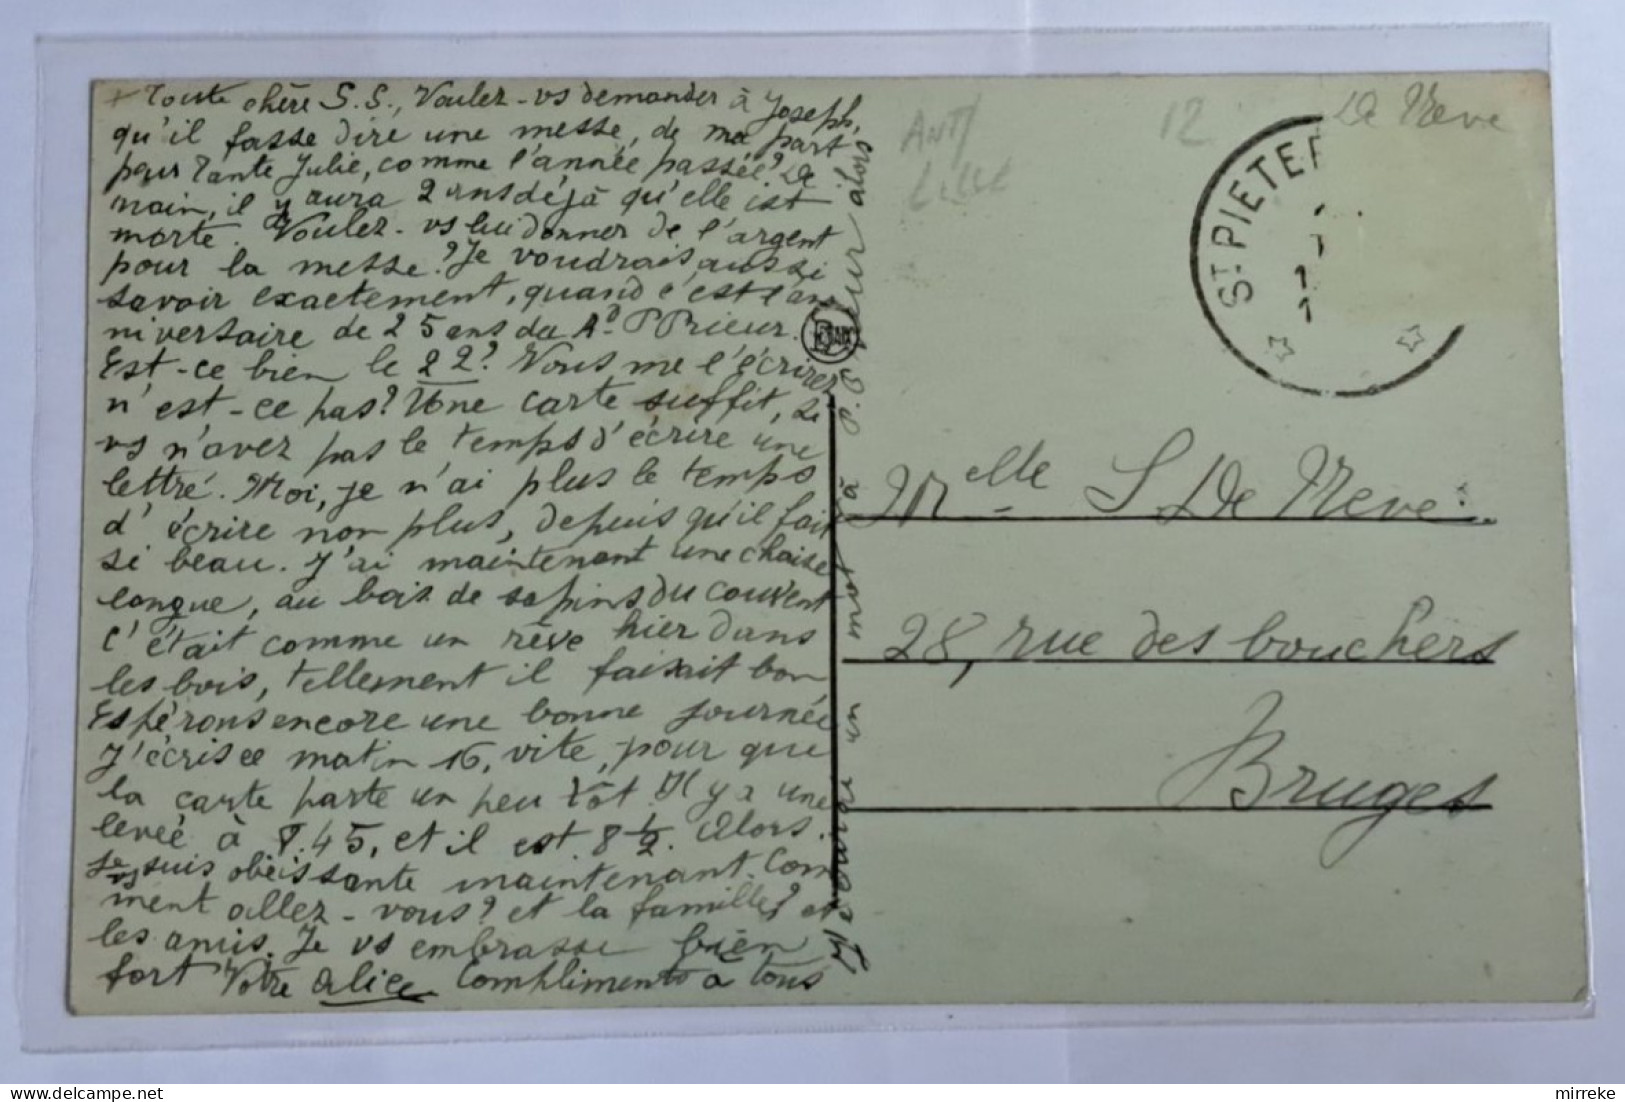 + Toute chère S.S., Voulez-vs demander à Joseph,
qu'il fasse dire une messe, de ma part
pour Tante Julie, comme l'année passée? De
main, il y aura 2 ans déjà qu'elle est
morte. Voulez-vs lui donner de l'argent
pour la messe? Je voudrais aussi
savoir exactement, quand c'est l'an
niversaire de 25 ans du Rd P Prieur.
Est-ce bien le 22? Vous me l'écrirez
n'est-ce pas? Une carte suffit, si
vs n'avez pas le temps d'écrire une
lettre. Moi, je n'ai plus le temps
d'écrire non plus, depuis qu'il fait
si beau. J'ai maintenant une chaise
longue, au bois de sapins du couvent
C'était comme un rêve hier dans
les bois, tellement il faisait bon
Espérons encore une bonne journée
J'écris ce matin 16, vite, pour que
la carte parte un peu tôt. Il y a une
levée à 8.45, et il est 8 1/2. Alors.
Je suis obéissante maintenant. Com
ment allez-vous? et la famille? et
les amis. Je vs embrasse bien
fort Votre Alice Compliments à tous
un mot à P. Prieur alors
ANT/
LILLE
12
De Neve
ST PIETER
Melle S. De Neve.
28, rue des bouchers
Bruges
mirreke